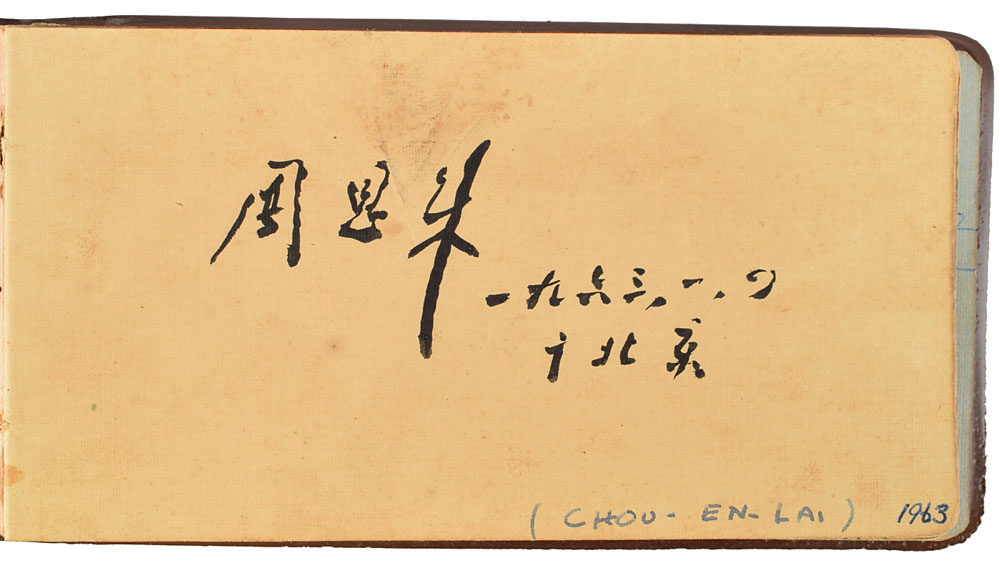 周恩来
一九六三、一、四
于北京
(CHOU-EN-LAI) 1963